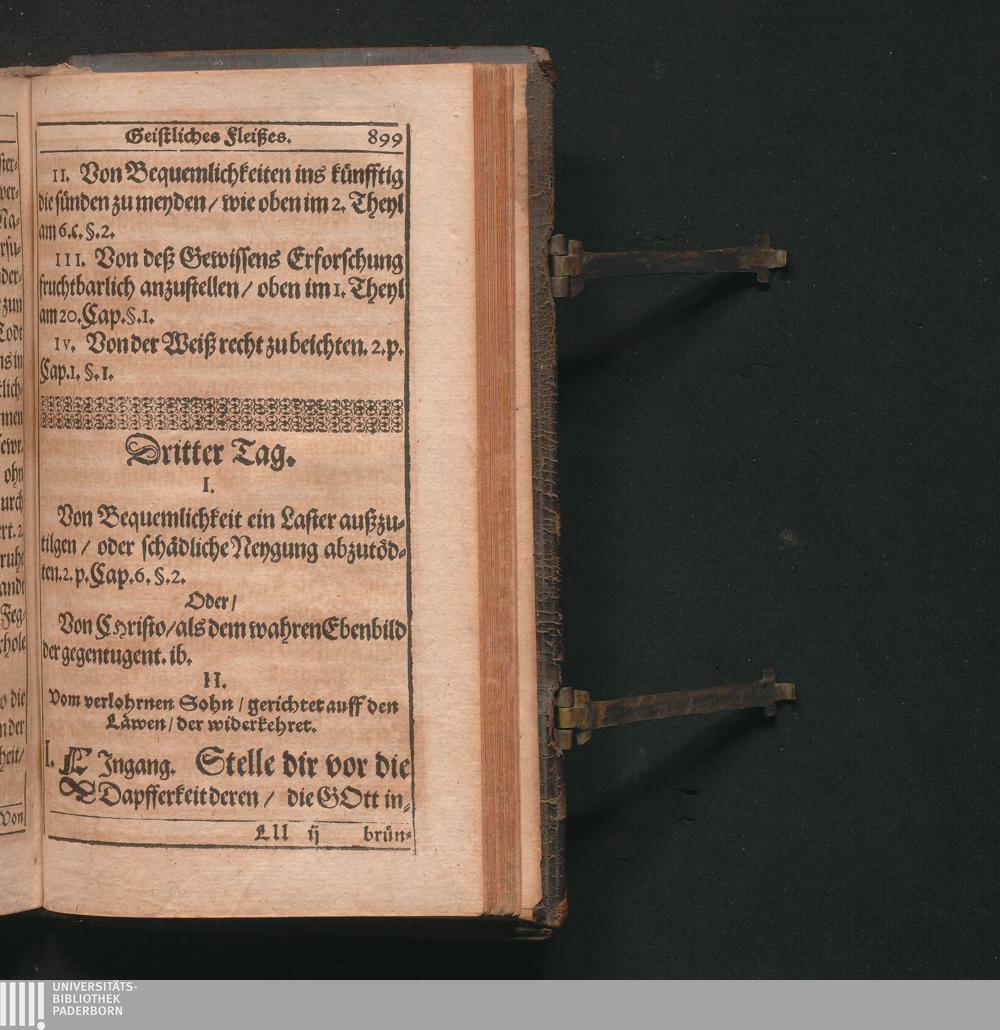 Geistliches Fleißes. 899
II. Von Bequemlichkeiten ins künfftig
die sünden zu meyden / wie oben im 2. Theyl
am 6. c. §. 2.
III. Von deß Gewissens Erforschung
fruchtbarlich anzustellen / oben im 1. Theyl
am 20. Cap. §. 1.
IV. Von der Weiß recht zu beichten. 2. p.
Cap. 1. §. 1.
Dritter Tag.
I.
Von Bequemlichkeit ein Laster außzu-
tilgen / oder schädliche Neygung abzutöd-
ten. 2. p. Cap. 6. §. 2.
Oder /
Von CHristo / als dem wahren Ebenbild
der gegentugent. ib.
II.
Vom verlohrnen Sohn / gerichtet auff den
Läwen / der widerkehret.
I. EJngang. Stelle dir vor die
Dapfferkeit deren / die GOtt in-
Lll ij brün-
Von
UNIVERSITÄTS-
BIBLIOTHEK
PADERBORN